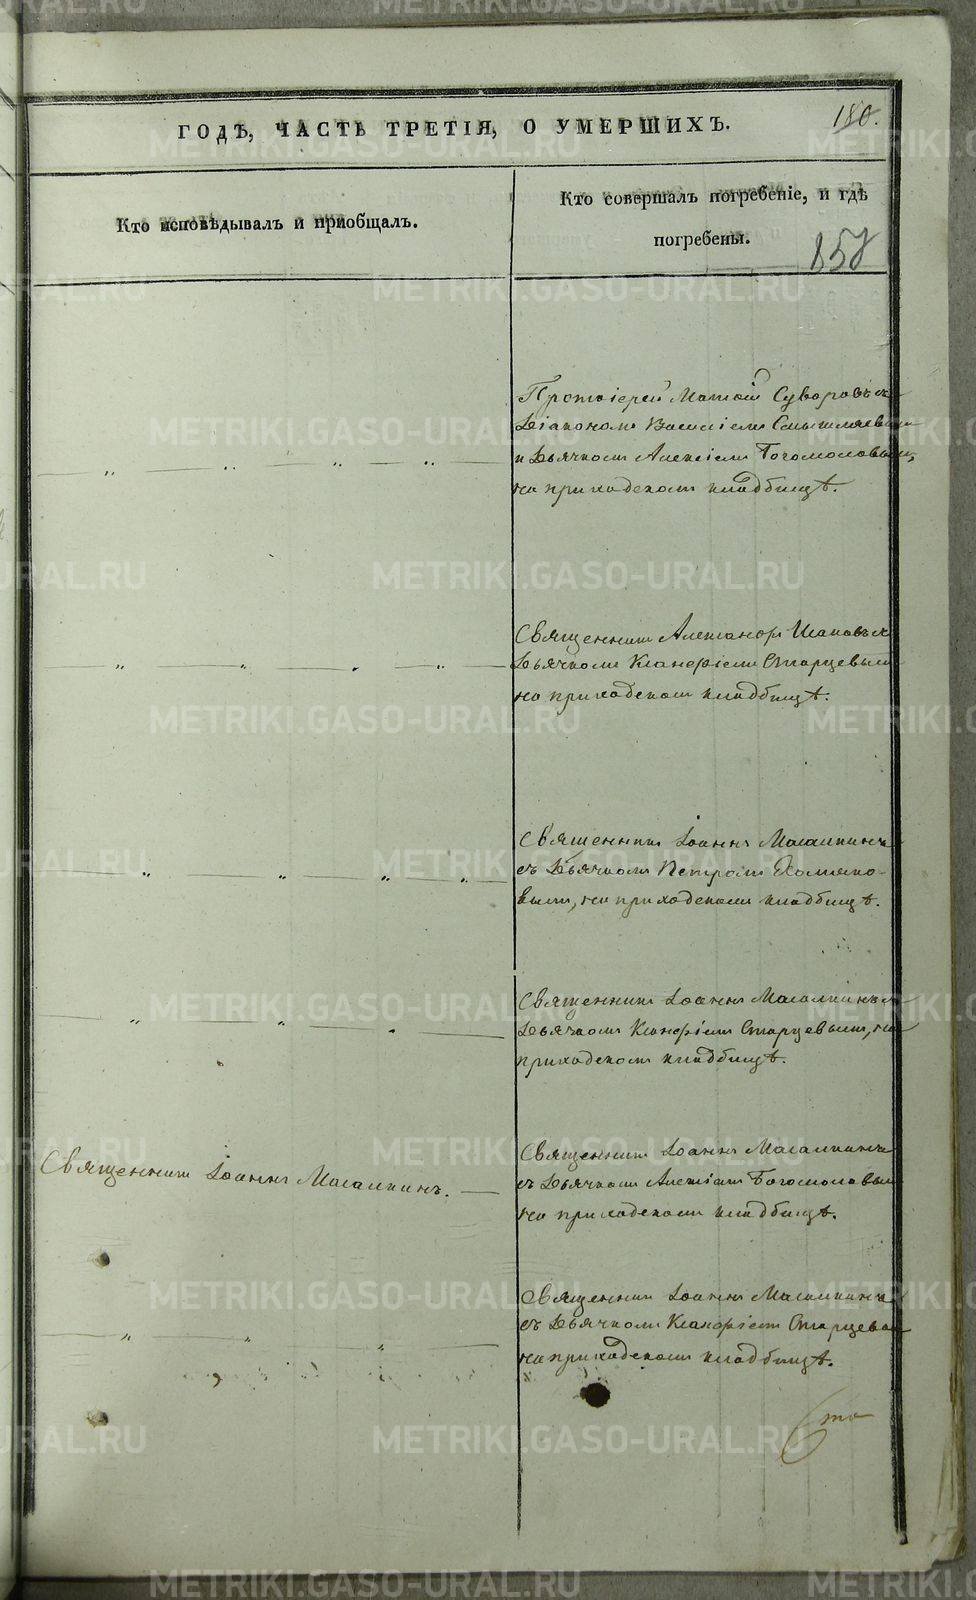 180.
ГОДѢ, ЧАСТЬ ТРЕТІЯ, О УМЕРШИХЪ.
Кто исповѣдывалъ и пріобщалъ.
Кто совершалъ погребеніе, и гдѣ
погребены.
158
Протоіерей Матѳій Суворовъ съ
Діакономъ Василіемъ Смышляевымъ
и Дьячкомъ Алексіемъ Богомоловымъ,
на приходскомъ кладбищѣ.
Священникъ Александръ Исаковъ съ
Дьячкомъ Старцевымъ
на приходскомъ кладбищѣ.
Священникъ Іоаннъ
съ Дьячкомъ Петромъ Хомяко-
вымъ, на приходскомъ кладбищѣ.
Священникъ Іоаннъ
Дьячкомъ Старцевымъ, на
приходскомъ кладбищѣ.
Священникъ Іоаннъ
Священникъ Іоаннъ
съ Дьячкомъ Алексіемъ Богомоловымъ
на приходскомъ кладбищѣ.
Священникъ Іоаннъ
съ Дьячкомъ Старцевымъ
на приходскомъ кладбищѣ.
METRIKI.GASO-URAL.RU